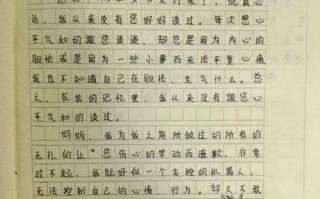 话，我从来没有您好好谈过。每次想心
平气和的跟您谈谈，却总是因为内心的
胆怯或是因为一些小事而无法平复心情
我也不知道自己在胆怯、生气什么。总
之，在我的记忆里，我从来没有跟您心
平气和的谈过。
妈妈，我为我之前所做过的所有的
无礼的让"您伤心的举动而道歉，非常
对不起，我就好似一个失控的机器人，
无法控制自己的心情、行为。却又不敢